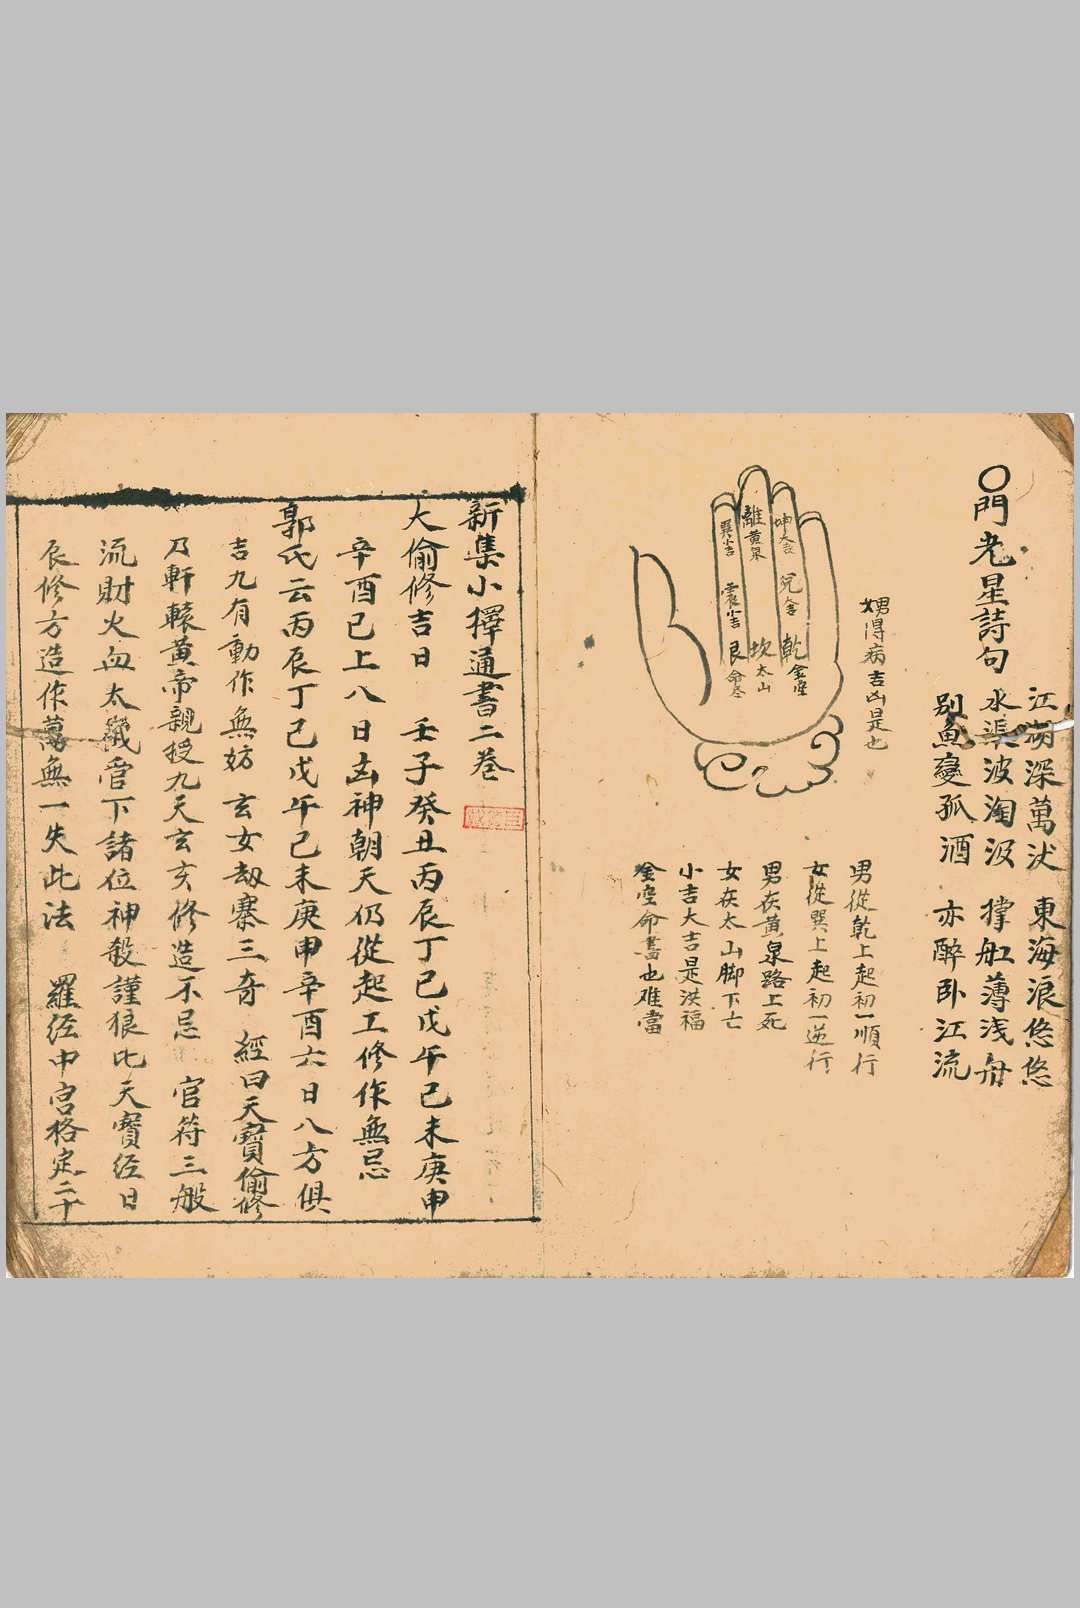 〇門老星詩句
江湖深萬丈 東海浪悠悠
水渠波淘汲 撑舡薄浅舟
别魚變孤酒 亦醉卧江流
男女得病吉凶是也
巽小吉
離黄泉
坤大吉
震小吉
兑金
艮命尽
坎太山
乾金空
男從乾上起初一順行
女從巽上起初一逆行
男在黄泉路上死
女在太山脚下亡
小吉大吉是洪福
金空命書也难當
新集小擇通書二卷
大偷修吉日 壬子癸丑丙辰丁巳戊午己未庚申
辛酉已上八日凶神朝天仍從起工修作無忌
郭氏云丙辰丁巳戊午己未庚申辛酉六日八方俱
吉九有動作無妨 玄女刼寨三奇 經曰天寶偷修
乃軒轅黄帝親授九天玄亥修造不忌 官符三般
流財火血太歲官下諸位神殺謹狼比天寶經日
辰修方造作萬無一失此法 羅经中宫格定二十